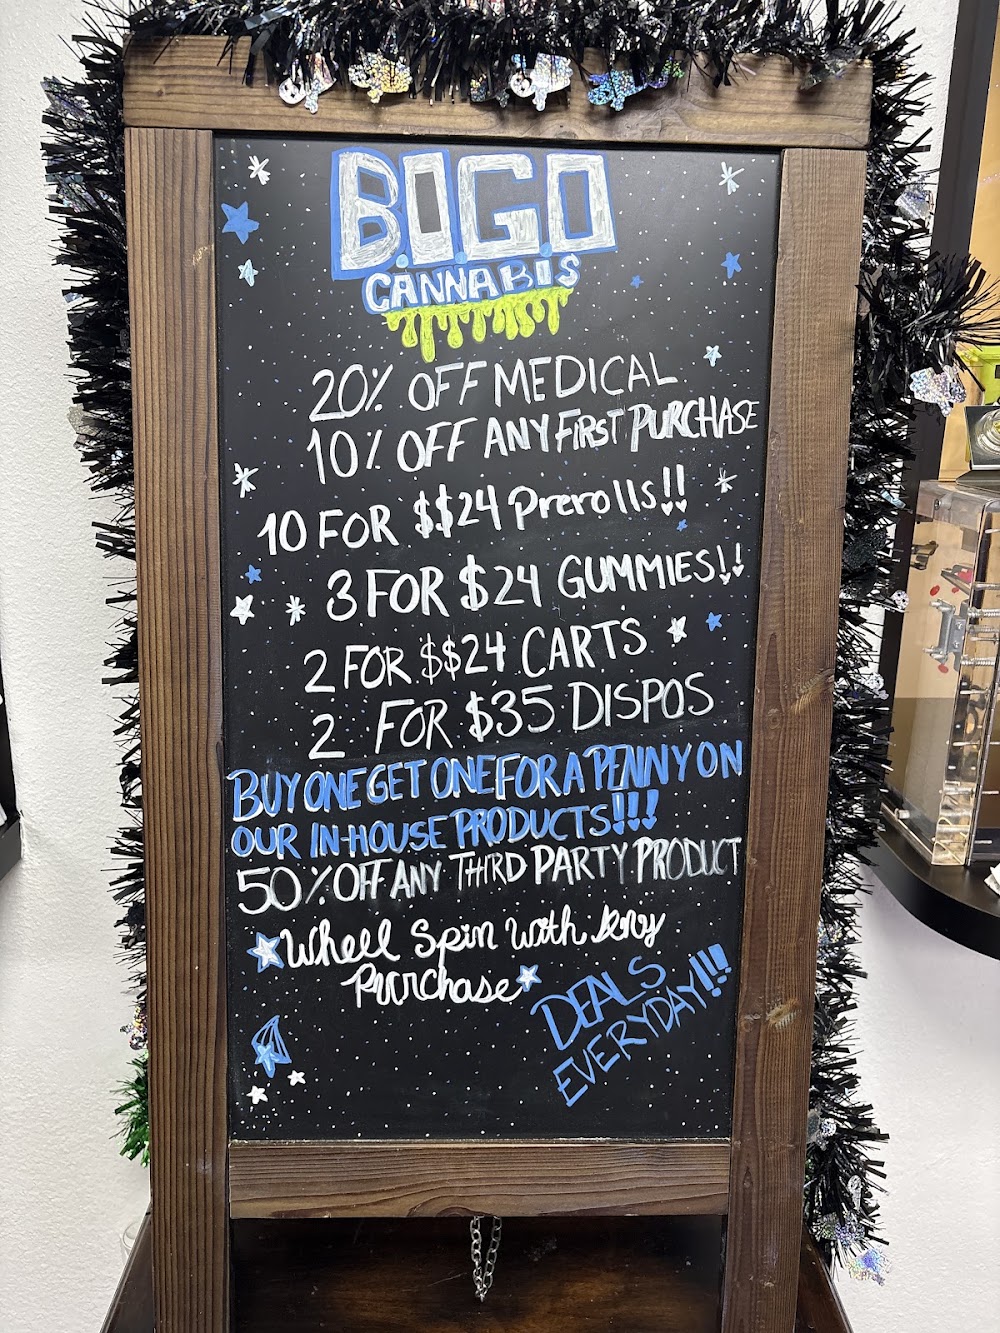 B.O.G.O
CANNABIS
20% OFF MEDICAL
10% OFF ANY FIRST PURCHASE
10 FOR $$24 Prerolls!!
3 FOR $24 GUMMIES!!
2 FOR $$24 CARTS
2 FOR $35 DISPOS
BUY ONE GET ONE FOR A PENNY ON
OUR IN-HOUSE PRODUCTS!!!
50% OFF ANY THIRD PARTY PRODUCT
Wheel Spin with Any
Purchase
DEALS
EVERYDAY!!!